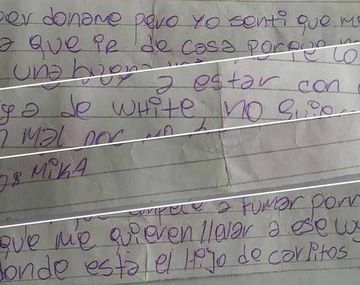 perdoname pero yo senti que me
a que ir de casa porque lo
una buena
a estar con
ga de white no quie
n mal por un
MiKA
empece a fumar porr
que me quieren llevar a ese w
onde está el Hijo de carlitos